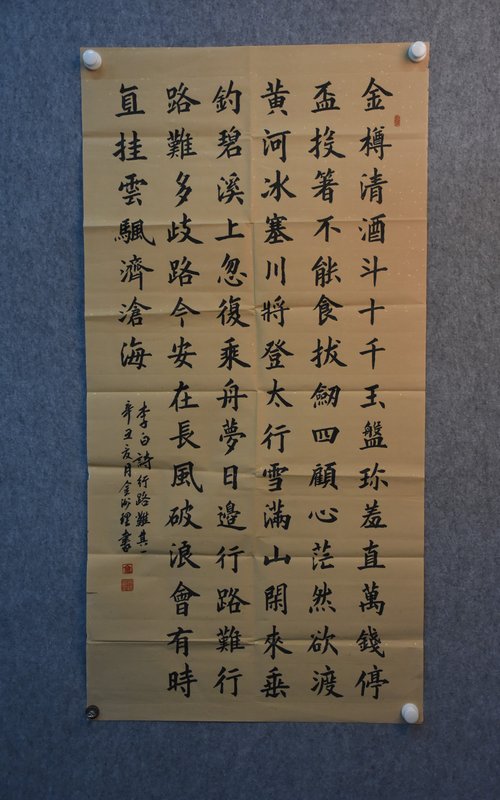 金樽清酒斗十千玉盤珎羞直萬錢停
盃投箸不能食拔劒四顧心茫然欲渡
黄河冰塞川將登太行雪滿山閑來垂
釣碧溪上忽復乘舟夢日邊行路難行
路難多歧路今安在長風破浪會有時
直挂雲颿濟滄海
李白詩行路難其一
辛丑亥月金書